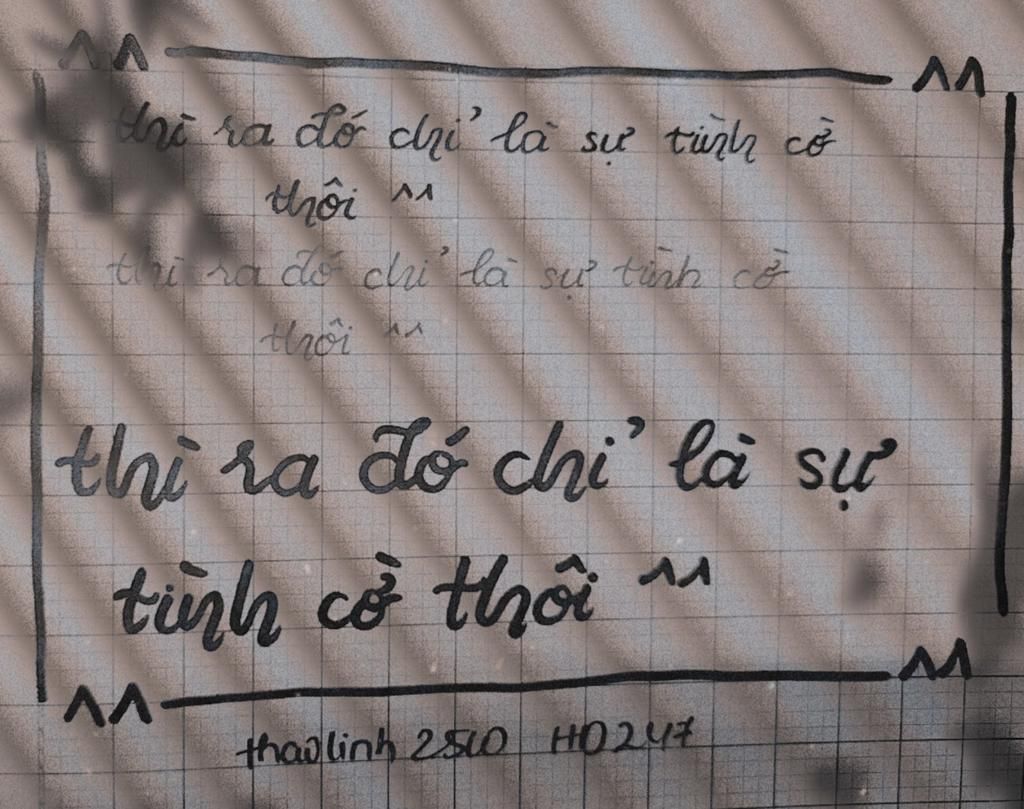 ^^ ^^
thì ra đó chỉ là sự tình cờ
thôi ^^
thì ra đó chỉ là sự tình cờ
thôi ^^
thì ra đó chỉ là sự
tình cờ thôi ^^
^^ ^^
thaolinh 2510 HD247